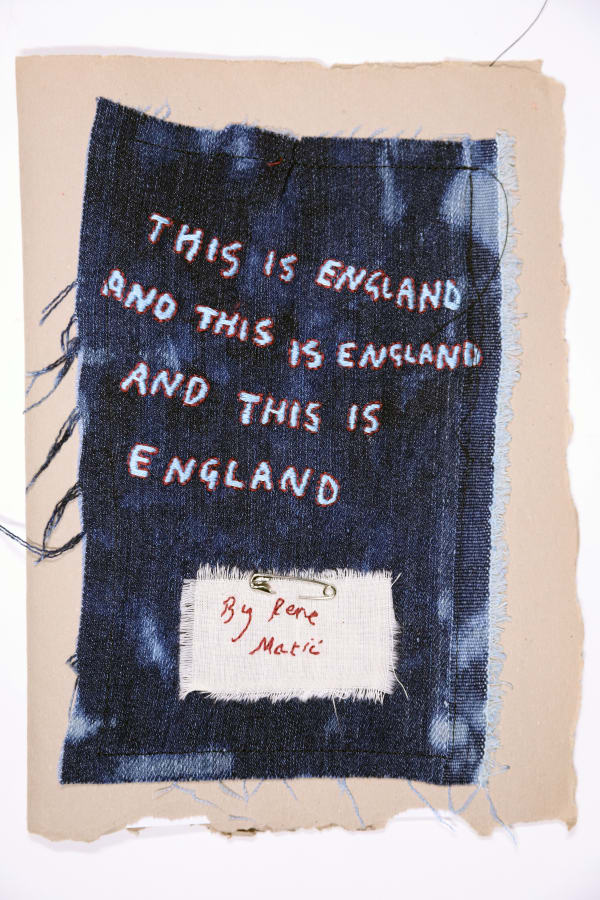 THIS IS ENGLAND
AND THIS IS ENGLAND
AND THIS IS
ENGLAND
By Rene
Matić